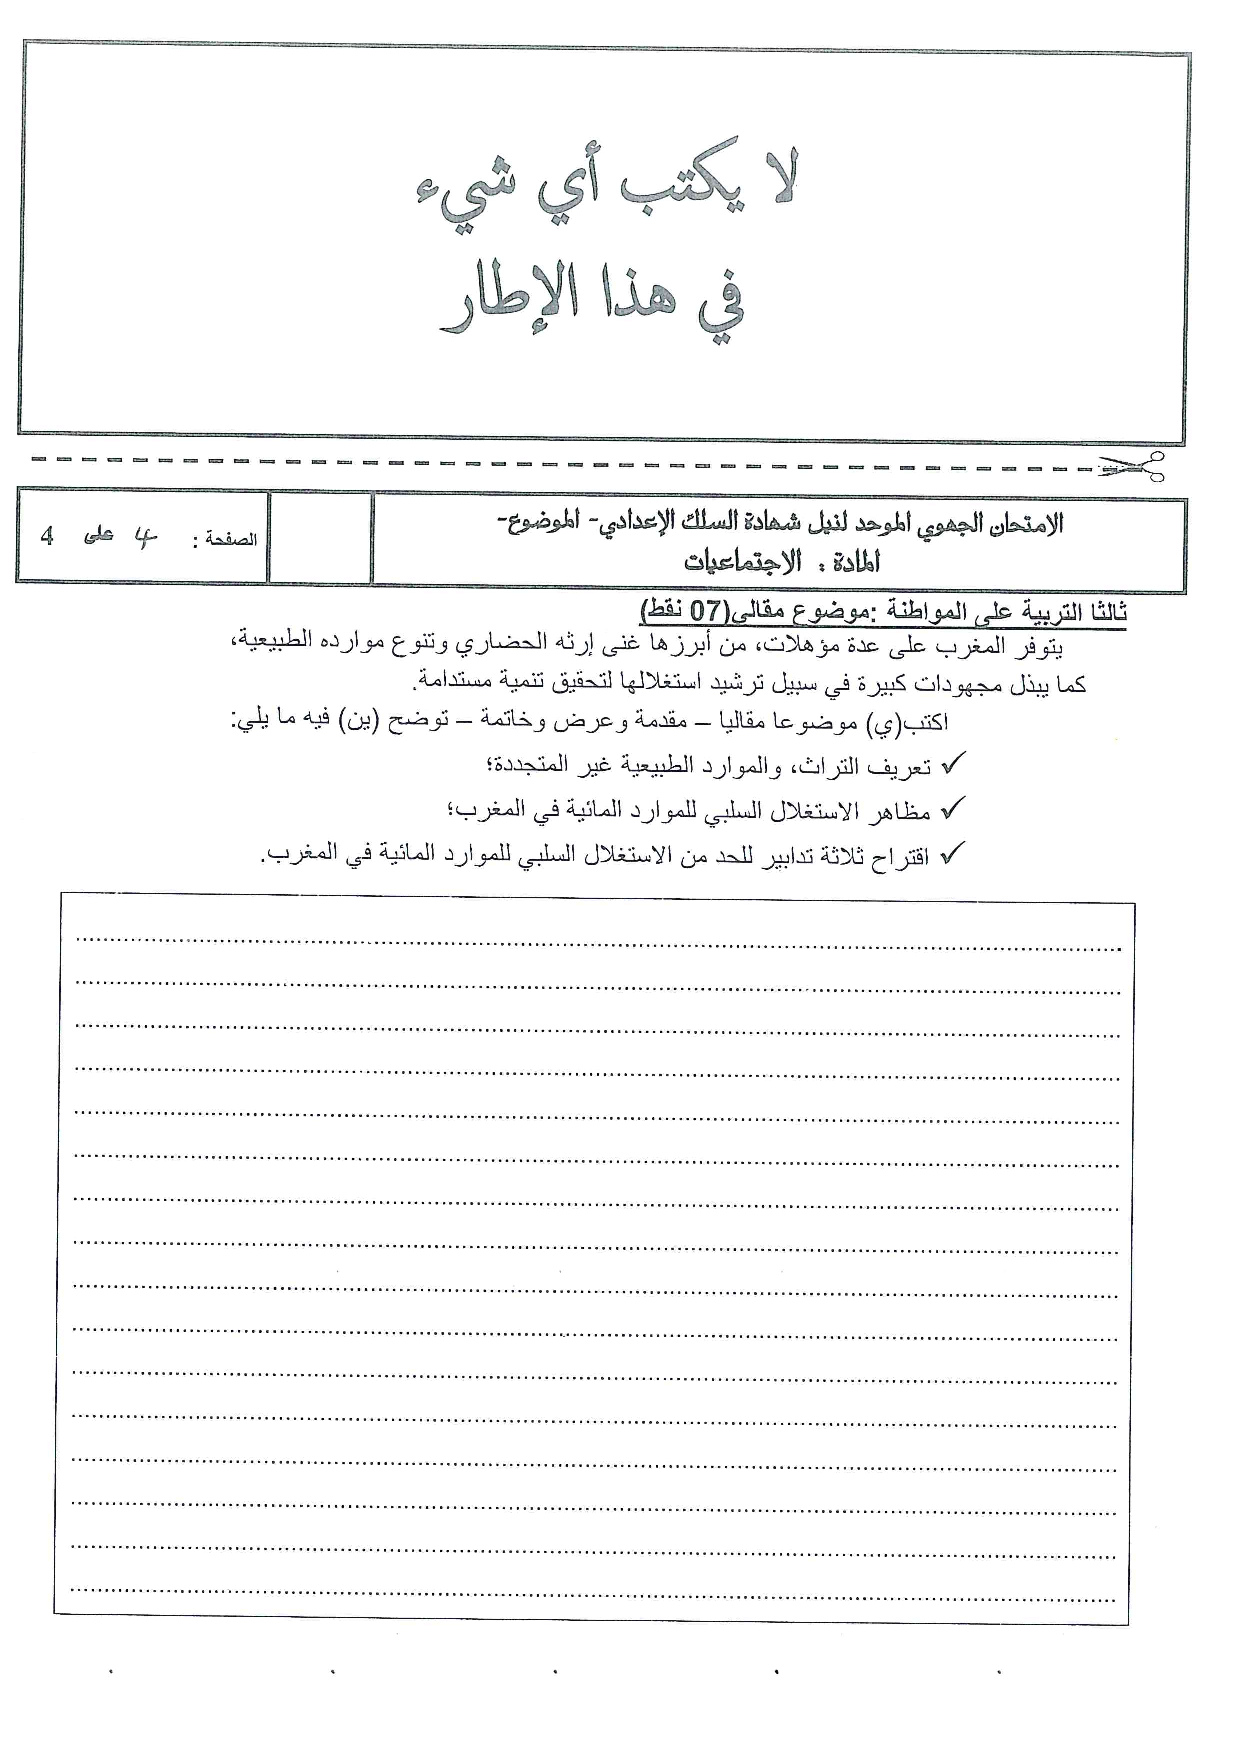 لا يكتب أي شيء
في هذا الإطار
الامتحان الجهوي الموحد لنيل شهادة السلك الإعدادي- الموضوع-
المادة : الاجتماعيات
الصفحة : 4 على 4
ثالثا التربية على المواطنة :موضوع مقالي(07 نقط)
يتوفر المغرب على عدة مؤهلات، من أبرزها غنى إرثه الحضاري وتنوع موارده الطبيعية،
كما يبذل مجهودات كبيرة في سبيل ترشيد استغلالها لتحقيق تنمية مستدامة.
اكتب(ي) موضوعا مقاليا – مقدمة وعرض وخاتمة – توضح (ين) فيه ما يلي:
✓ تعريف التراث، والموارد الطبيعية غير المتجددة؛
✓ مظاهر الاستغلال السلبي للموارد المائية في المغرب؛
✓ اقتراح ثلاثة تدابير للحد من الاستغلال السلبي للموارد المائية في المغرب.